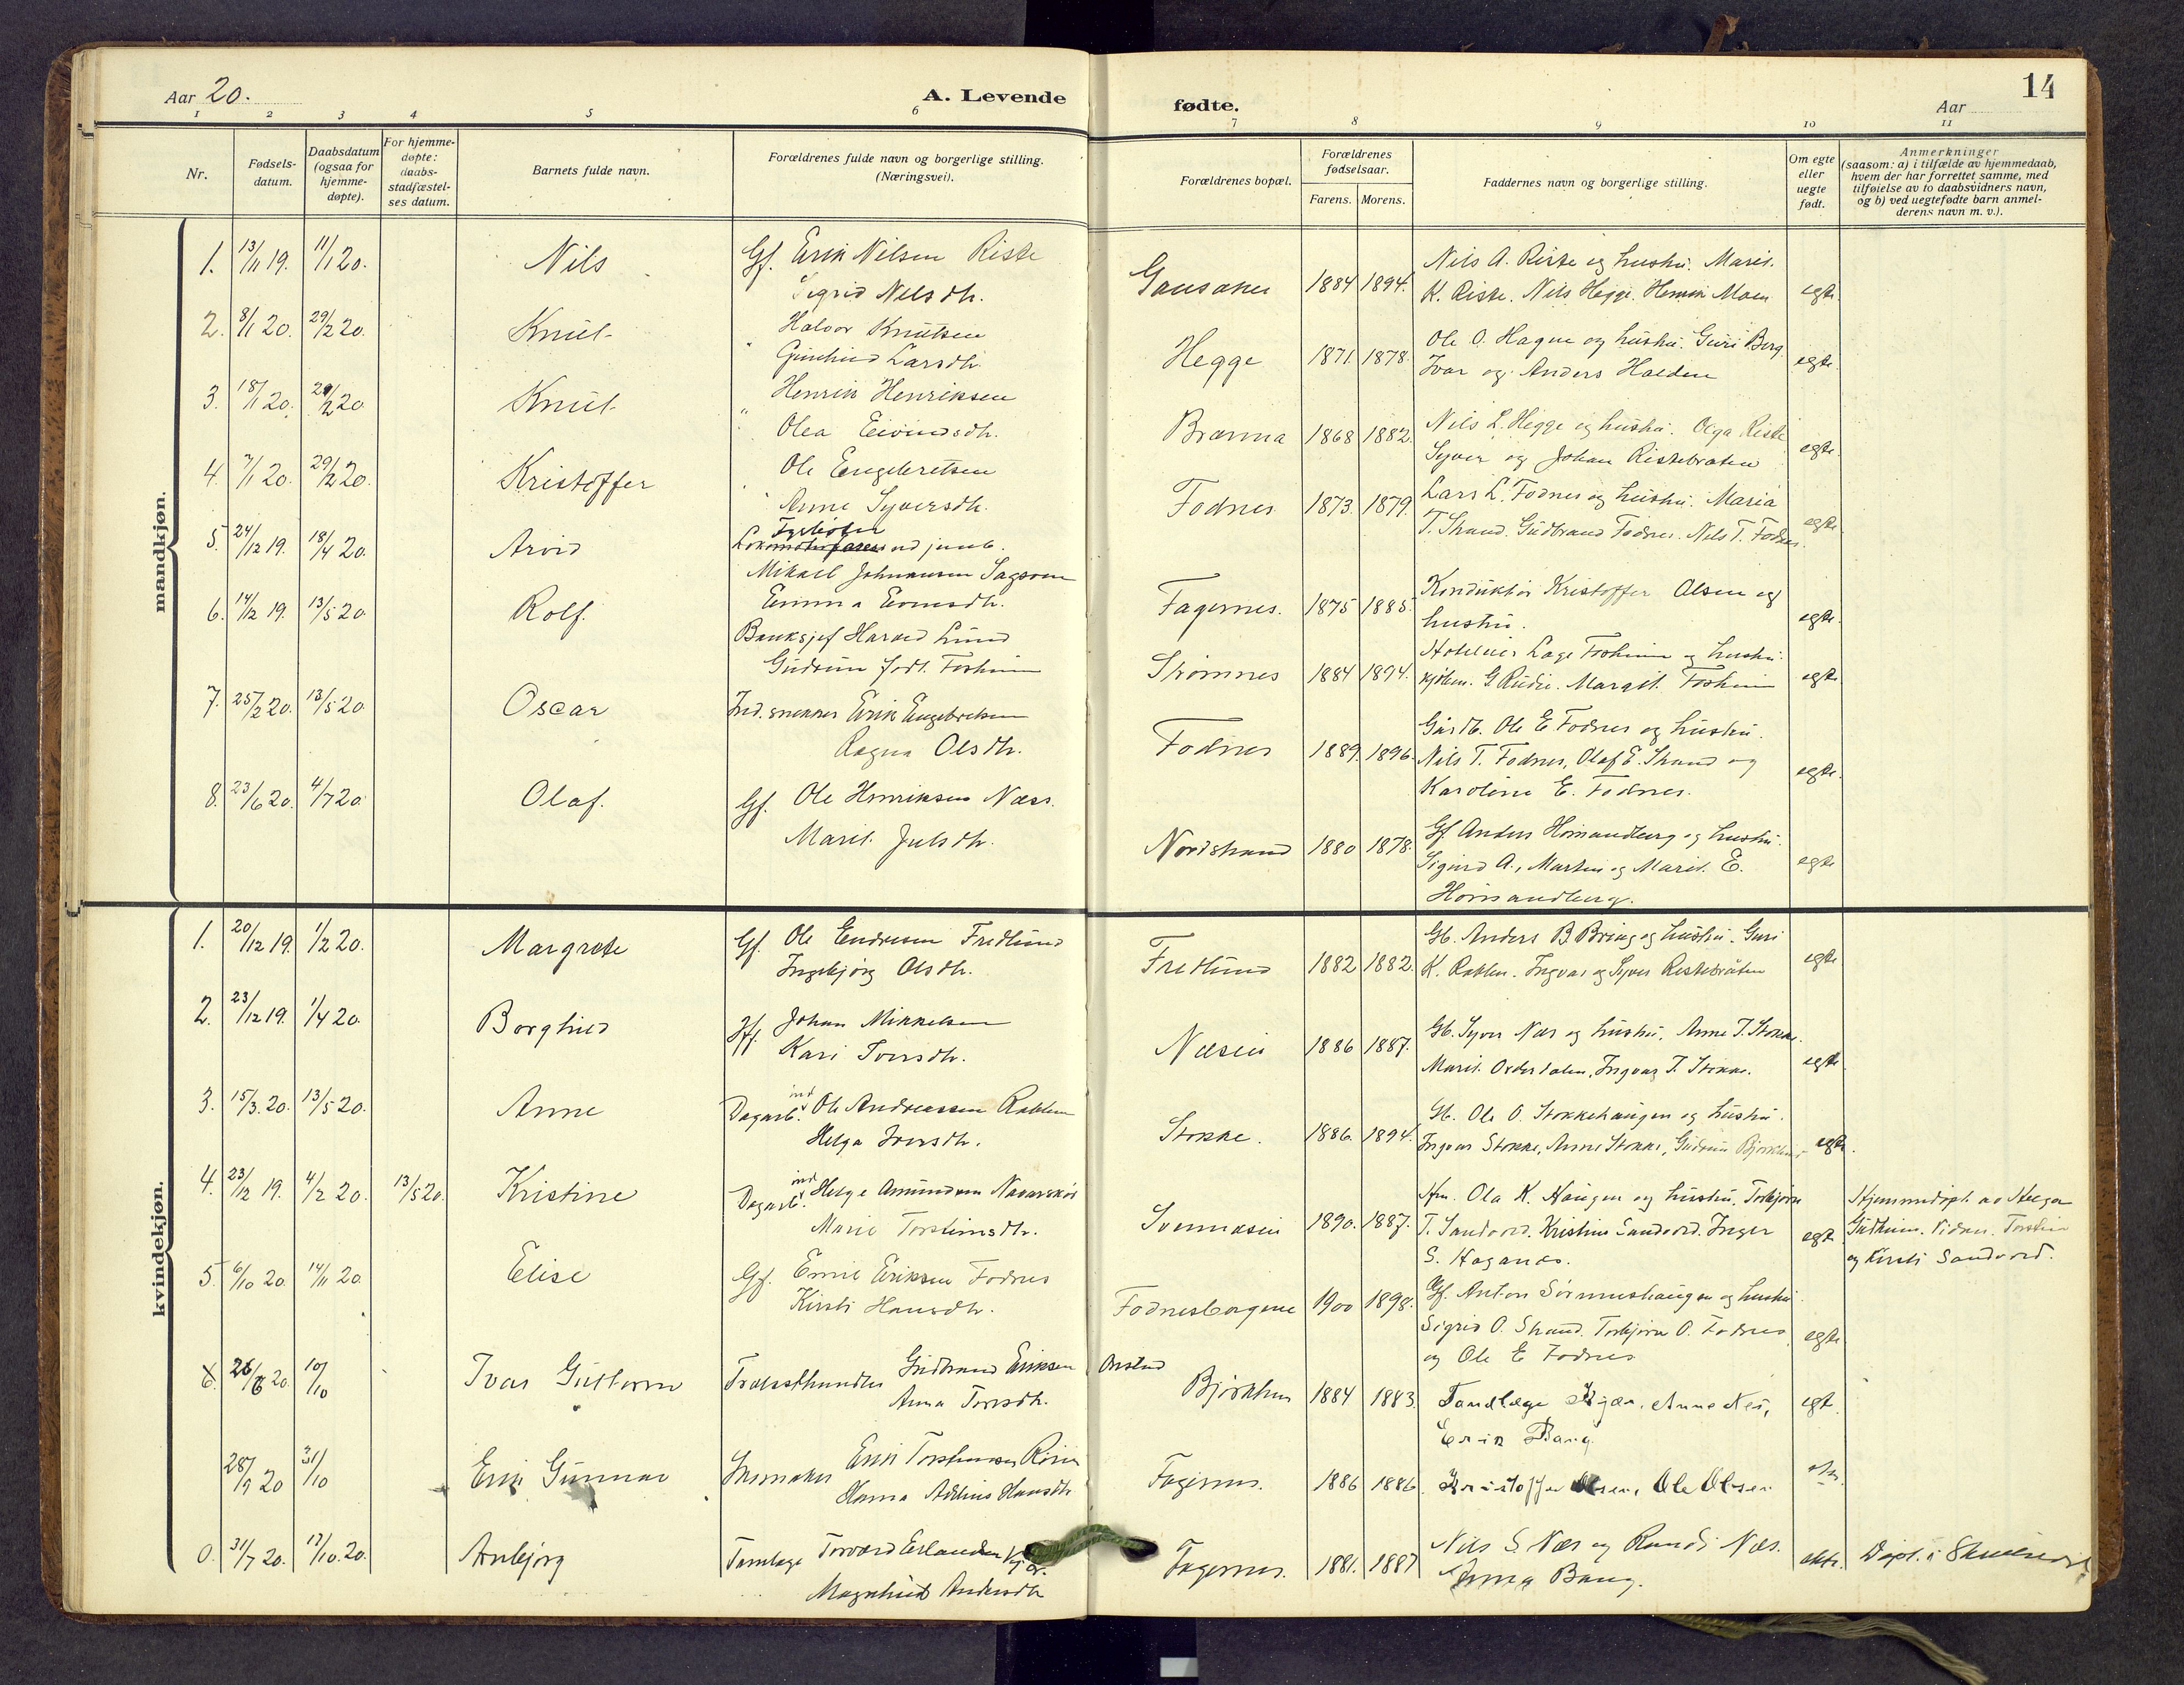 Aar 20.
A. Levende
fødte.
Aar
14
1 2 3 4 5 6 7 8 9 10 11
Nr.
Fødsels-
datum.
Daabsdatum
(ogsaa for
hjemme-
døpte).
For hjemme-
døpte:
daabs-
stadfæstel-
ses datum.
Barnets fulde navn.
Forældrenes fulde navn og borgerlige stilling.
(Næringsvei).
Forældrenes bopæl.
Forældrenes
fødselsaar.
Farens. Morens.
Faddernes navn og borgerlige stilling.
Om egte
eller
uegte
født.
Anmerkninger
(saasom: a) i tilfælde av hjemmedaab,
hvem der har forrettet samme, med
tilføielse av to daabsvidners navn,
og b) ved uegtefødte barn anmel-
derens navn m. v.).
mandkjøn.
1. 13/11 19. 11/1 20. Nils Gf. Erik Nilsen Riste
Sigrid Nilsdtr.
1884 1894. Nils A. Riste og hustru. Marit
K. Riste. Nils Hegge. Henrik Moen egte.
2. 8/1 20. 29/2 20. Knut Halvor Knutsen
Gunhild Larsdtr.
Hegge 1871. 1878. Ole O. Hagen og hustru. Guri Berg.
Ivar og Anders Halden egte.
3. 18/1 20. 29/2 20. Knut Henrik Henriksen
Olea Eivindsdtr.
Brænna 1868 1882. Nils L. Hegge og hustru. Olga Riste
Syver og Johan Ristebraten egte.
4. 7/1 20. 29/2 20. Kristoffer Ole Engebretsen
Anne Syversdtr.
Fodnes 1873. 1879. Lars L. Fodnes og hustru. Maria
T. Strand. Gudbrand Fodnes. Nils T. Fodnes. egte.
5. 24/12 19. 18/4 20. Arvid
Mikael Johannesen
Emma
Fagernes. 1875 1885. Konduktør Kristoffer Olsen og
hustru. egte.
6. 14/12 19. 13/5 20. Rolf.
Banksjef Harald Lund
Gudrun født Fosheim
Strømnes 1884 1894. Lage Fosheim og hustru.
Margit Fosheim egte.
7. 25/2 20. 13/5 20. Oscar Ind. snekker Erik Engebretsen
Ragna Olsdtr.
Fodnes 1889. 1896. Gårdb. Ole E Fodnes og hustru.
Nils T. Fodnes, Olaf E. Strand og
Karoline E. Fodnes. egte.
8. 23/6 20. 4/7 20. Olaf. Gf. Ole Henriksen Næss.
Marit Julsdtr.
Nordstrand 1880 1878. Gf. Anders Hömandberg og hustru.
Sigurd A., Martin og Marit E.
Hömandberg. egte
kvindekjøn.
1. 20/12 19. 1/2 20. Margrete Gf. Ole Endresen Fredlund
Ingebjørg Olsdtr.
Fredlund 1882 1882. Gb. Anders B. Bring og hustru. Guri
K. Rablen. Ingvar og Syver Ristebråten egte
2. 23/12 19. 1/4 20. Borghild Johan Mikkelsen
Kari Iversdtr.
1886 1887. Gb. Syver Næs og hustru, Anne T. Stokke.
Marit Ingvar T. Stokke. egte.
3. 15/3. 20. 13/5 20. Anne Dagarb. ind Ole Andreassen Rablen
Helga Iversdtr.
Stokke. 1886. 1894. Gb. Ole O. Stokkehaugen og hustru.
Ingvar Stokke, Anne Stokke, Gudrun egte.
4. 23/12 19. 4/2 20. 13/5 20. Kristine Dagarb. ind Helge Amundsen
Marie Torsteinsdtr.
1890. 1887. Ola K. Haugen og hustru. Torbjørn
T. Sandvord. Kristine Sandvord. Inger
S. Haganæs. egte
Hjemmedøpt av Helga
Vidner. Torstein
og Kirsti Sandvord.
5. 6/10 20. 14/11 20. Elise Gf. Emil Eriksen Fodnes
Kirsti Hansdtr.
1900 1898. Gf. Anton Sørumshaugen og hustru.
Sigrid O. Strand. Torbjørn O. Fodnes
og Ole E Fodnes egte
6. 26/8 20. 10/10 Ivar Guttorm Gudbrand Eriksen
Anna Iversdtr.
Bjørkheim 1884 1883. Tandlæge Kjær, Anne Nes,
Erik Bang. egt.
28/9 20 31/10 Erik Gunnar Skomaker Erik Torstensen
Hanna Adeline Hansdtr
Fagernes. 1886 1886. Kristoffer Olsen, Ole Olsen
0. 31/7 20. 17/10. 20. Anbjørg Tannlæge Torvard Erlandsen Kjær.
Magnhild Andersdtr
Fagernes. 1881. 1887 Nils S. Næs og Randi Næs.
Anna Bang. ekte. Døpt i